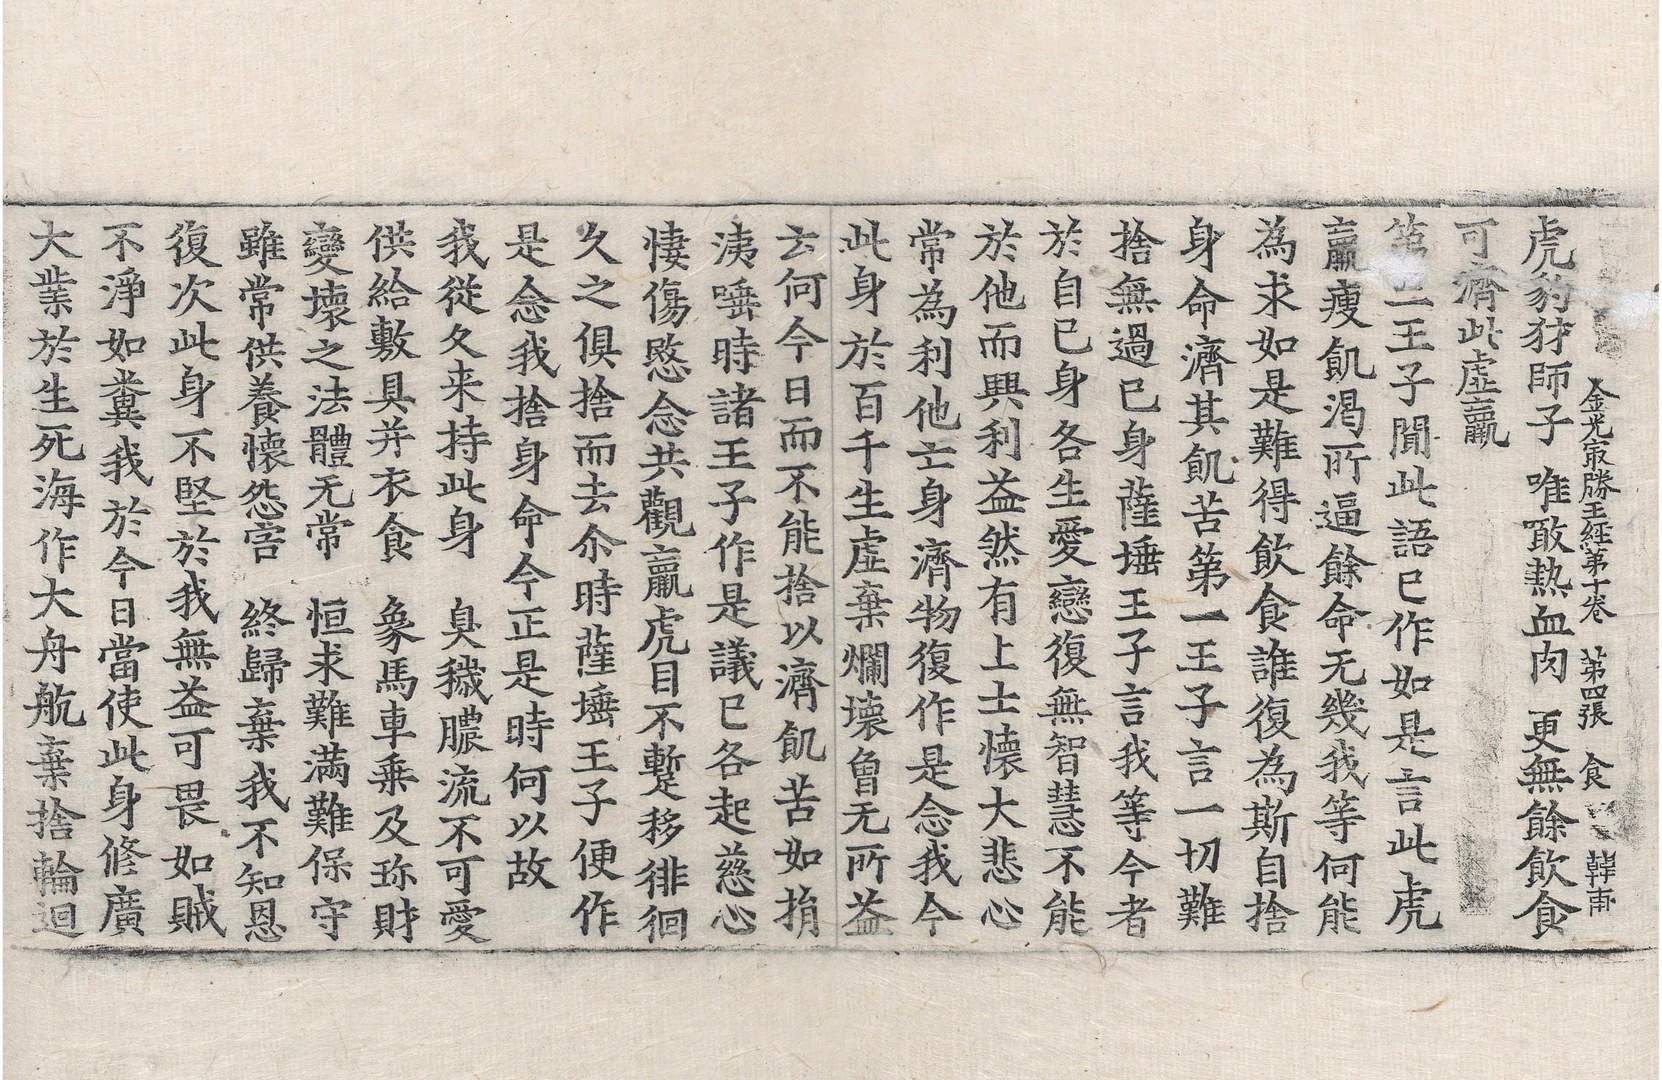 金光㝡勝王經第十卷　第四張　食　韓甫
虎豹犲師子　唯噉熱血肉　更無餘飲食
可濟此虛羸
第二王子聞此語已作如是言此虎
羸瘦飢渴所逼餘命无幾我等何能
為求如是難得飲食誰復為斯自捨
身命濟其飢苦第一王子言一切難
捨無過己身薩埵王子言我等今者
於自己身各生愛戀復無智慧不能
於他而興利益然有上士懷大悲心
常為利他亡身濟物復作是念我今
此身於百千生虛棄爛壞曾无所益
云何今日而不能捨以濟飢苦如捐
洟唾時諸王子作是議已各起慈心
悽傷愍念共觀羸虎目不蹔移徘徊
久之俱捨而去尒時薩埵王子便作
是念我捨身命今正是時何以故
我從久来持此身　臭穢膿流不可愛
供給敷具并衣食　象馬車乗及珎財
變壞之法體无常　恒求難滿難保守
雖常供養懷怨害　終歸棄我不知恩
復次此身不堅於我無益可畏如賊
不淨如糞我於今日當使此身修廣
大業於生死海作大舟航棄捨輪迴